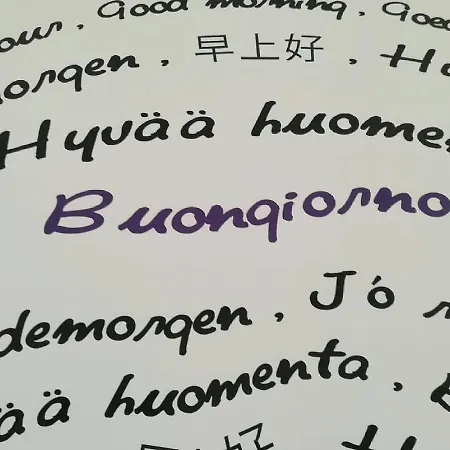 our, Good morning, Goed
orgen, 早上好, H
Hyvää huomen
Buongiorno
demorgen, Jó
ää huomenta,
上好